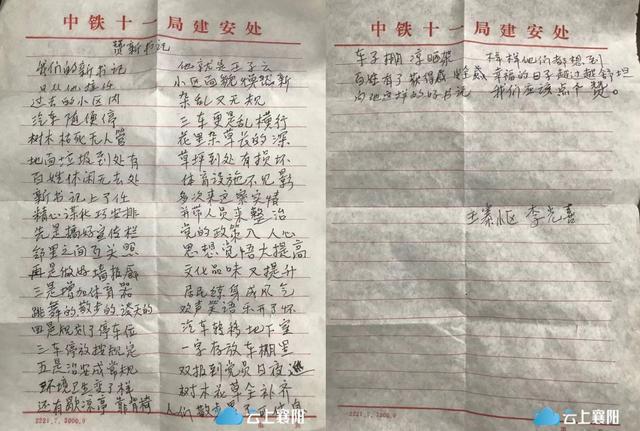 中铁十一局建安处
赞新书记
我们的新书记 他就是王子云
自从他接任 小区面貌焕然新
过去的小区内 杂乱又无规
汽车随便停 三车更是乱横行
树木枯死无人管 花里杂草长的深
地面垃圾到处有 草坪到处有损坏
百姓休闲无去处 体育设施不见影
新书记上了任 多次来这察实情
精心谋化巧安排 并带人员来整治
先是搞好宣传栏 党的政策入人心
邻里之间互关照 思想党悟大提高
再是做好墙报廊 文化品味又提升
三是增加体育器 居民练身成风气
跳舞的散步的谈天的 欢声笑语乐开了怀
四是规划了停车位 汽车转移地下室
三车停放按规定 一字存放车棚里
五是治安成常规 双报到党员日夜巡
环境卫生变了样 树木花草全补齐
还有歇凉亭靠背椅 人们散步累了
2221.7.3000.9
云上襄阳
中铁十一局建安处
车子棚 凉晒架 样样他们都想到
百姓有了获得感 安全感 幸福的日子越过越舒坦
这样的好书记 我们应该点个赞。
李光喜
2221.7.3000.9
云上襄阳